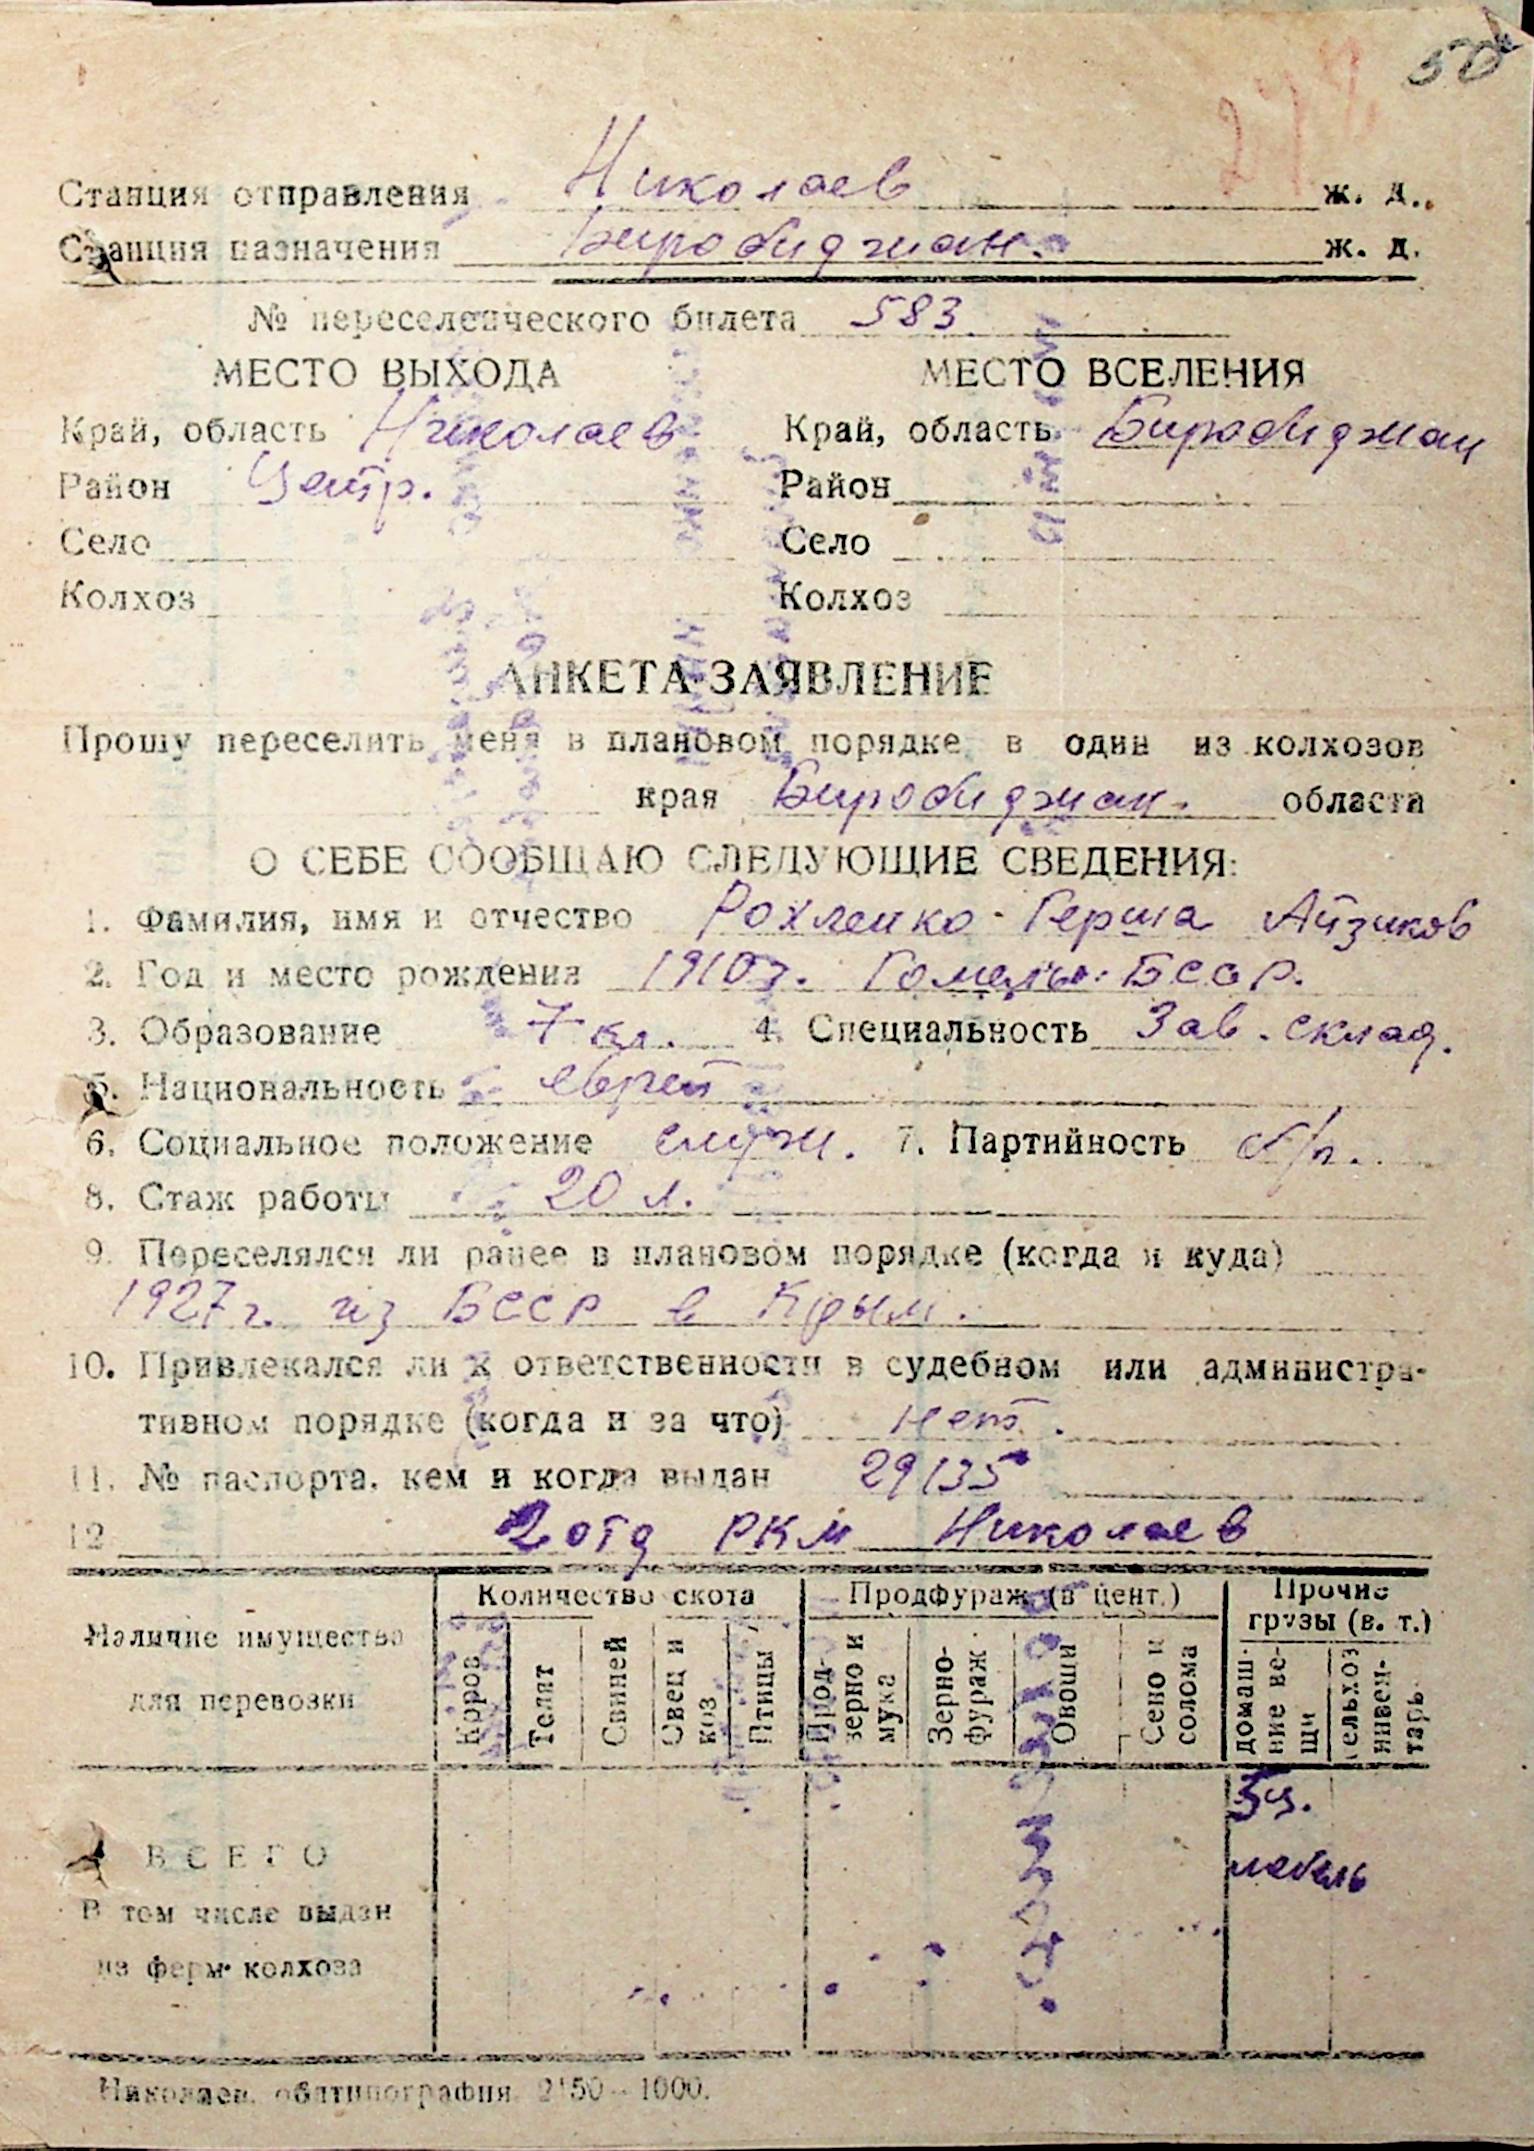 50
Станция отправления Николаев ж. д.
Станция назначения Биробиджан. ж. д.
№ переселенческого билета 583
МЕСТО ВЫХОДА МЕСТО ВСЕЛЕНИЯ
Край, область Николаев Край, область Биробиджан
Район Центр. Район
Село Село
Колхоз Колхоз
АНКЕТА-ЗАЯВЛЕНИЕ
Прошу переселить меня в плановом порядке в один из колхозов
края Биробиджан. области
О СЕБЕ СООБЩАЮ СЛЕДУЮЩИЕ СВЕДЕНИЯ:
1. Фамилия, имя и отчество Рохленко Герша Айзиков
2. Год и место рождения 1910г. Гомель БССР.
3. Образование 7 кл. 4. Специальность Зав. склад.
5. Национальность еврей
6. Социальное положение служ. 7. Партийность б/п.
8. Стаж работы 20 л.
9. Переселялся ли ранее в плановом порядке (когда и куда)
1927г. из БССР в Крым.
10. Привлекался ли к ответственности в судебном или администра-
тивном порядке (когда и за что) нет.
11. № паспорта, кем и когда выдан 29135
12 2 отд РКМ Николаев
Наличие имущества для перевозки Количество скота Продфураж (в цент.) Прочие грузы (в. т.)
Коров Телят Свиней Овец и коз Птицы Прод-зерно и мука Зерно-фураж Овощи Сено и солома домаш-ние ве-щи сельхоз инвен-тарь
ВСЕГО мебель
В том числе выдан
из ферм колхоза
Николаев, облтипография 2150—1000.